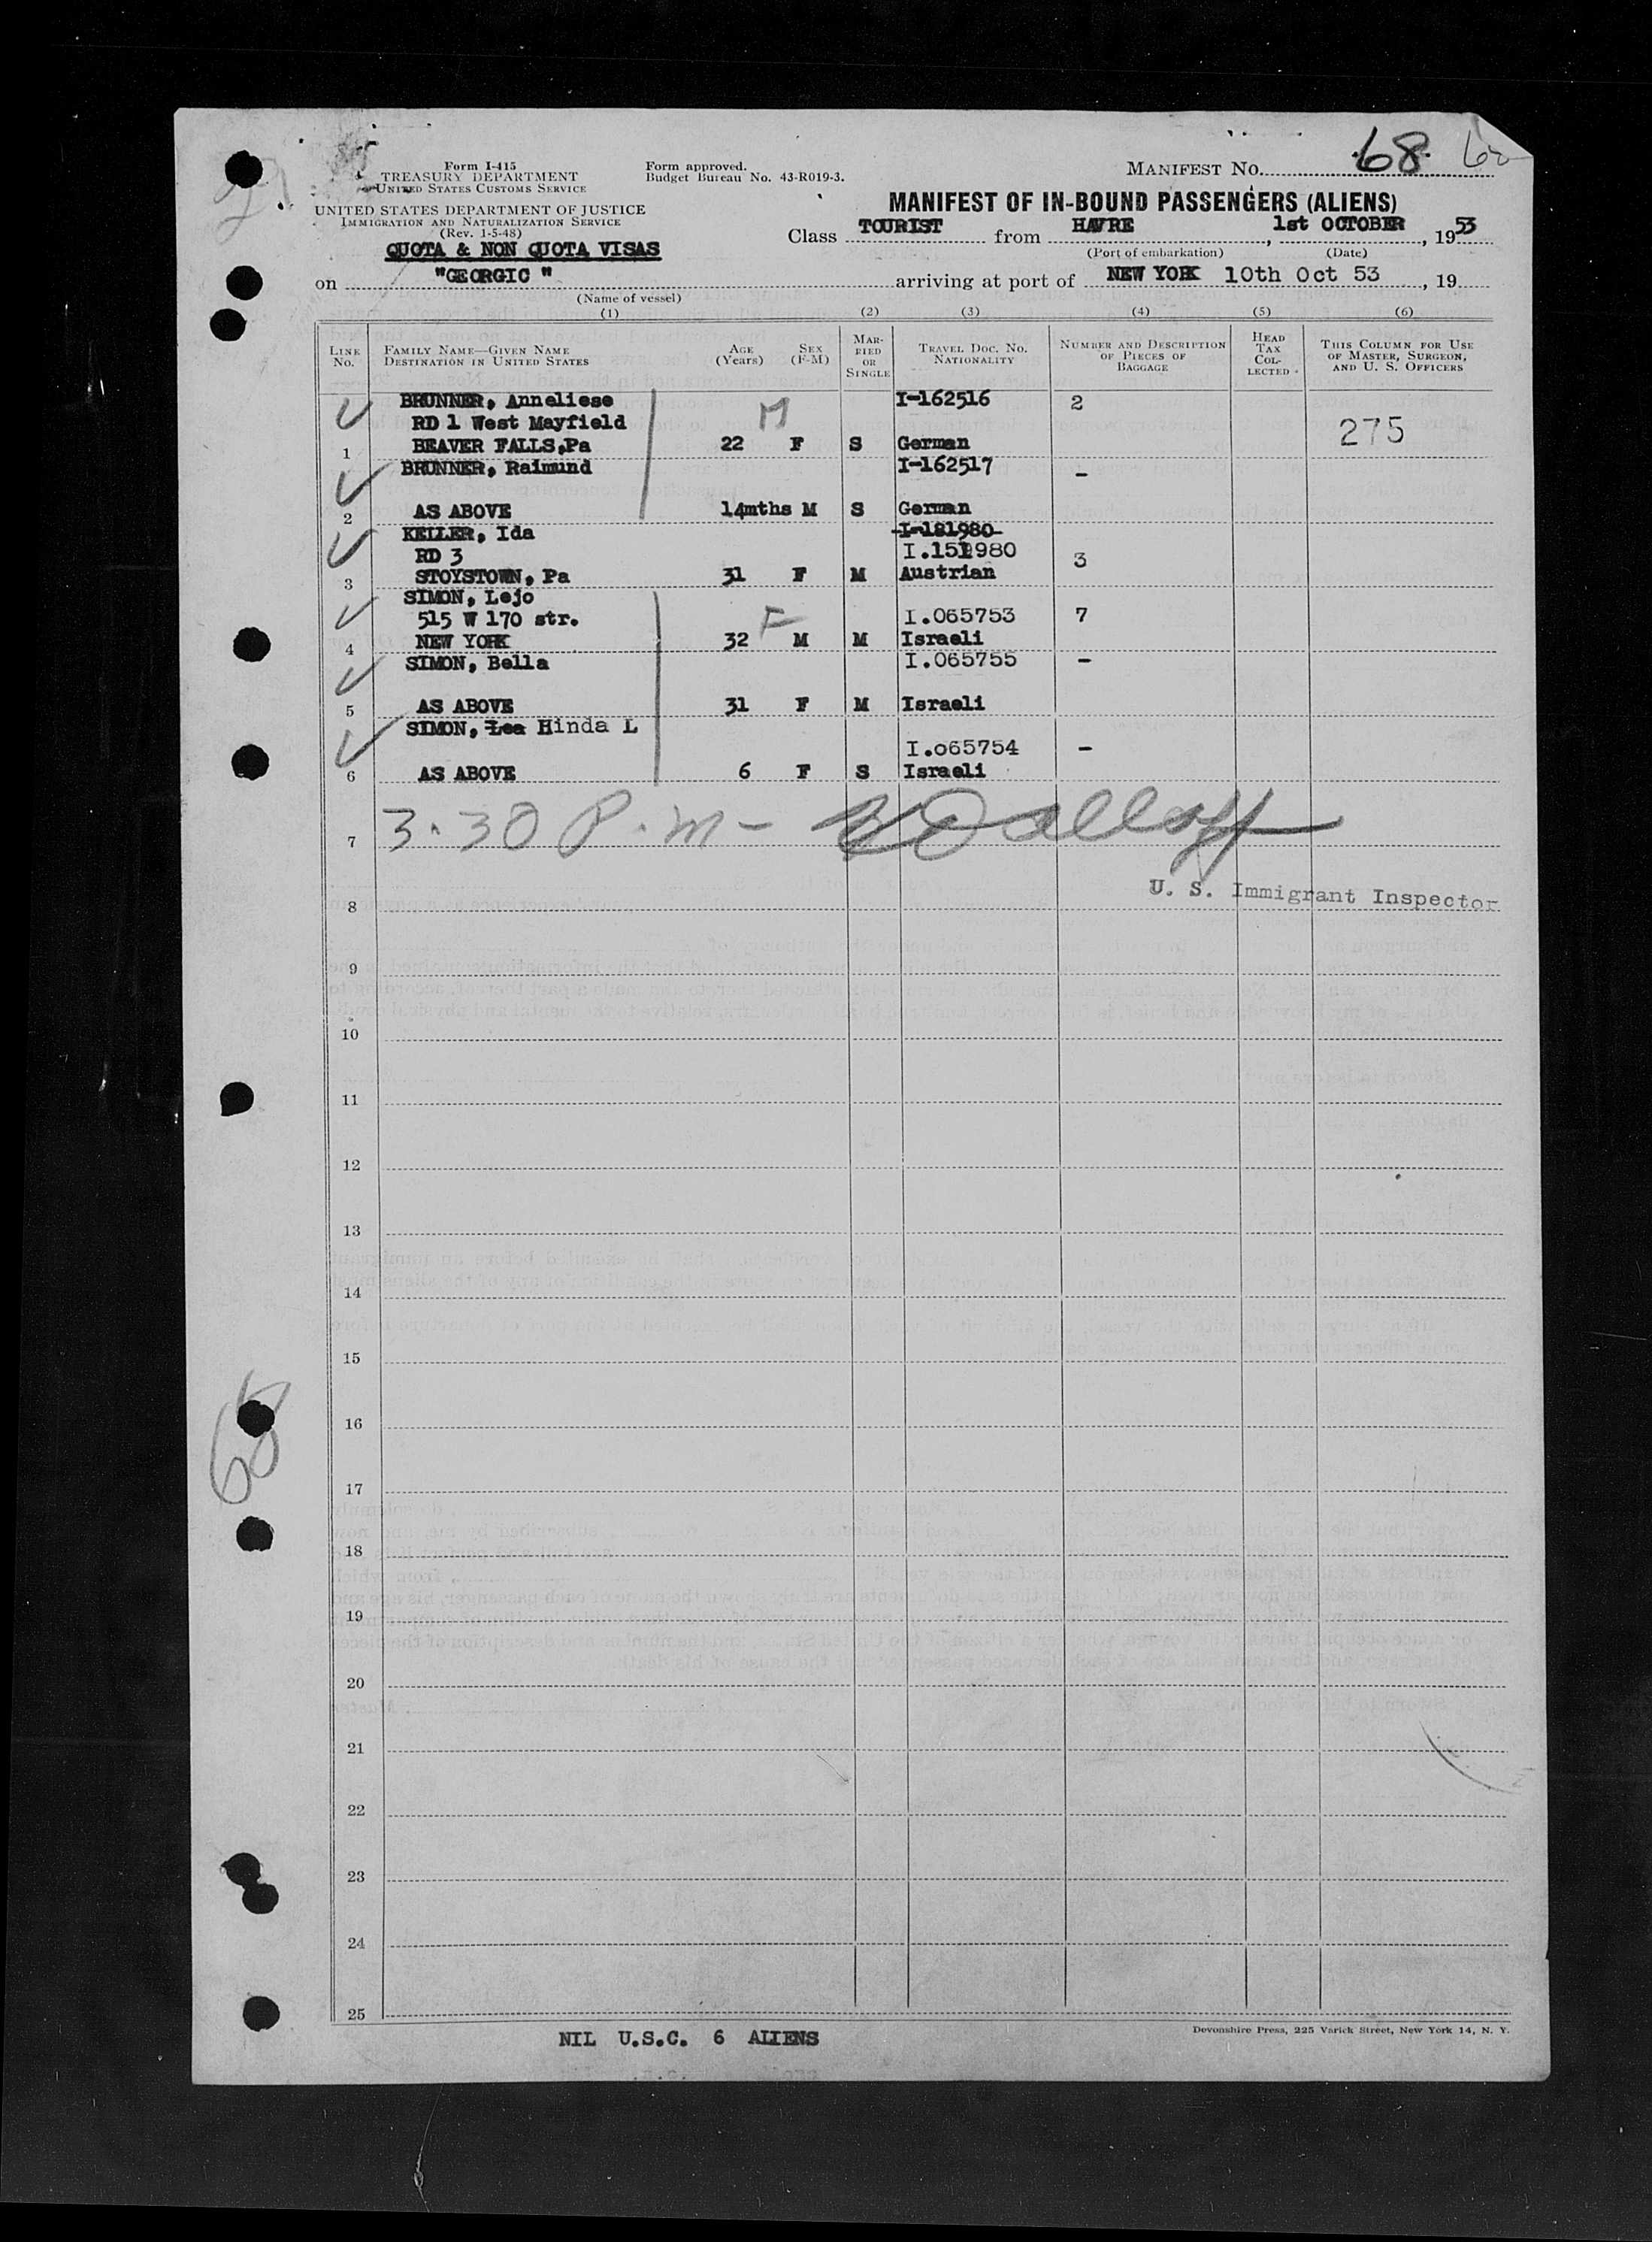 68 62
Form I-415
TREASURY DEPARTMENT
UNITED STATES CUSTOMS SERVICE
Form approved.
Budget Bureau No. 43-R019-3.
MANIFEST NO. 68
UNITED STATES DEPARTMENT OF JUSTICE
IMMIGRATION AND NATURALIZATION SERVICE
(Rev. 1-5-48)
MANIFEST OF IN-BOUND PASSENGERS (ALIENS)
QUOTA & NON QUOTA VISAS
Class TOURIST from HAVRE, 1st OCTOBER, 1953
(Port of embarkation) (Date)
on "GEORGIC" arriving at port of NEW YORK 10th Oct 53, 19
(Name of vessel)
(1) (2) (3) (4) (5) (6)
LINE NO. FAMILY NAME—GIVEN NAME DESTINATION IN UNITED STATES AGE (Years) SEX (F-M) MARRIED OR SINGLE TRAVEL DOC. NO. NATIONALITY NUMBER AND DESCRIPTION OF PIECES OF BAGGAGE HEAD TAX COLLECTED THIS COLUMN FOR USE OF MASTER, SURGEON, AND U. S. OFFICERS
BRUNNER, Anneliese I-162516 2
RD 1 West Mayfield M 275
1 BEAVER FALLS,Pa 22 F S German
BRUNNER, Raimund I-162517 -
2 AS ABOVE 14mths M S German
KELLER, Ida I-181980
RD 3 I.151980 3
3 STOYSTOWN, Pa 31 F M Austrian
SIMON, Lejo
515 W 170 str. F I.065753 7
4 NEW YORK 32 M M Israeli
SIMON, Bella I.065755 -
5 AS ABOVE 31 F M Israeli
SIMON, Lea Hinda L
I.o65754 -
6 AS ABOVE 6 F S Israeli
7 3.30 P.M-
U. S. Immigrant Inspector
8
9
10
11
12
13
14
15
16
17
18
19
20
21
22
23
24
25
NIL U.S.C. 6 ALIENS
Devonshire Press, 225 Varick Street, New York 14, N. Y.